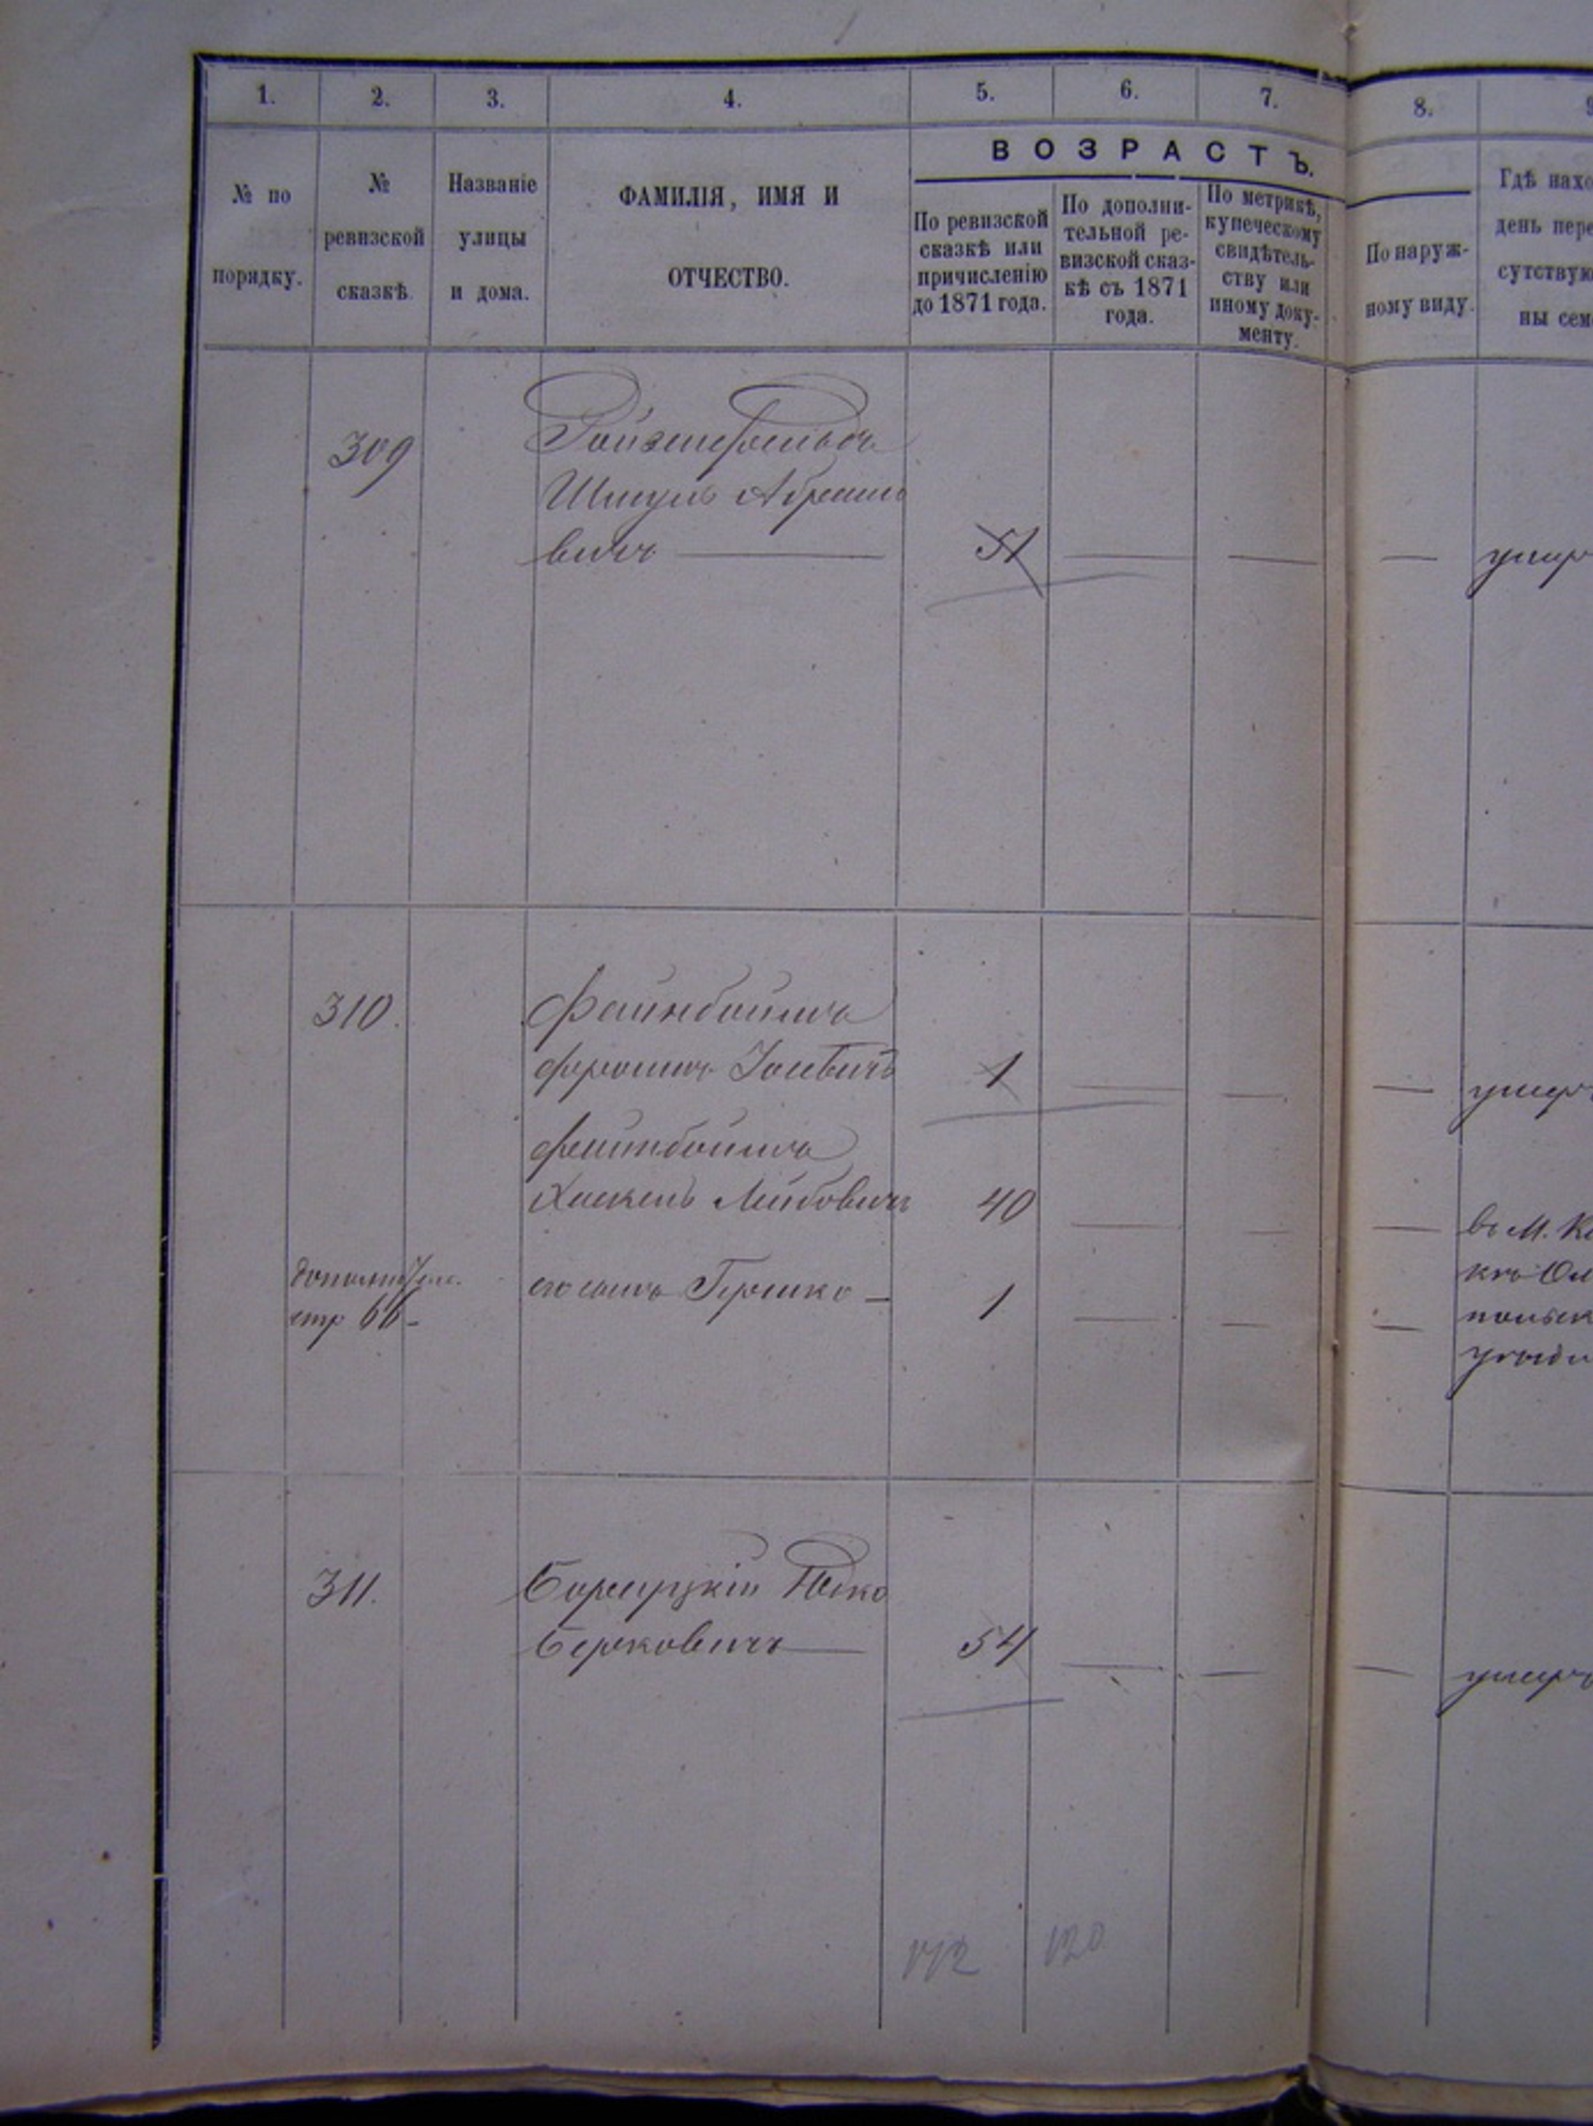 1. 2. 3. 4. 5. 6. 7. 8. 9
№ по
порядку.
№
ревизской
сказкѣ.
Названіе
улицы
и дома.
ФАМИЛІЯ, ИМЯ И
ОТЧЕСТВО.
ВОЗРАСТЪ.
По ревизской
сказкѣ или
причисленію
до 1871 года.
По дополни-
тельной ре-
визской сказ-
кѣ съ 1871
года.
По метрикѣ,
купеческому
свидѣтель-
ству или
иному доку-
менту.
По наруж-
ному виду.
Гдѣ нахо
день пере
сутствую
ны сем
309
Ройзенфельдъ
Шмуль Абрамо
вичъ —
51 — — — умер
310.
Файнбоймъ
Фроимъ Іосевичъ 1 — — — умеръ
Фейнбоймъ
Хаскель Лейбовичъ 40 — — — въ М. К
дополнител.
стр 66 –
его сынъ Гершко – 1 — — —
польск
уѣзди
311.
Борщуцкій Юдко
Берковичъ — 54 — — — умеръ
172 120